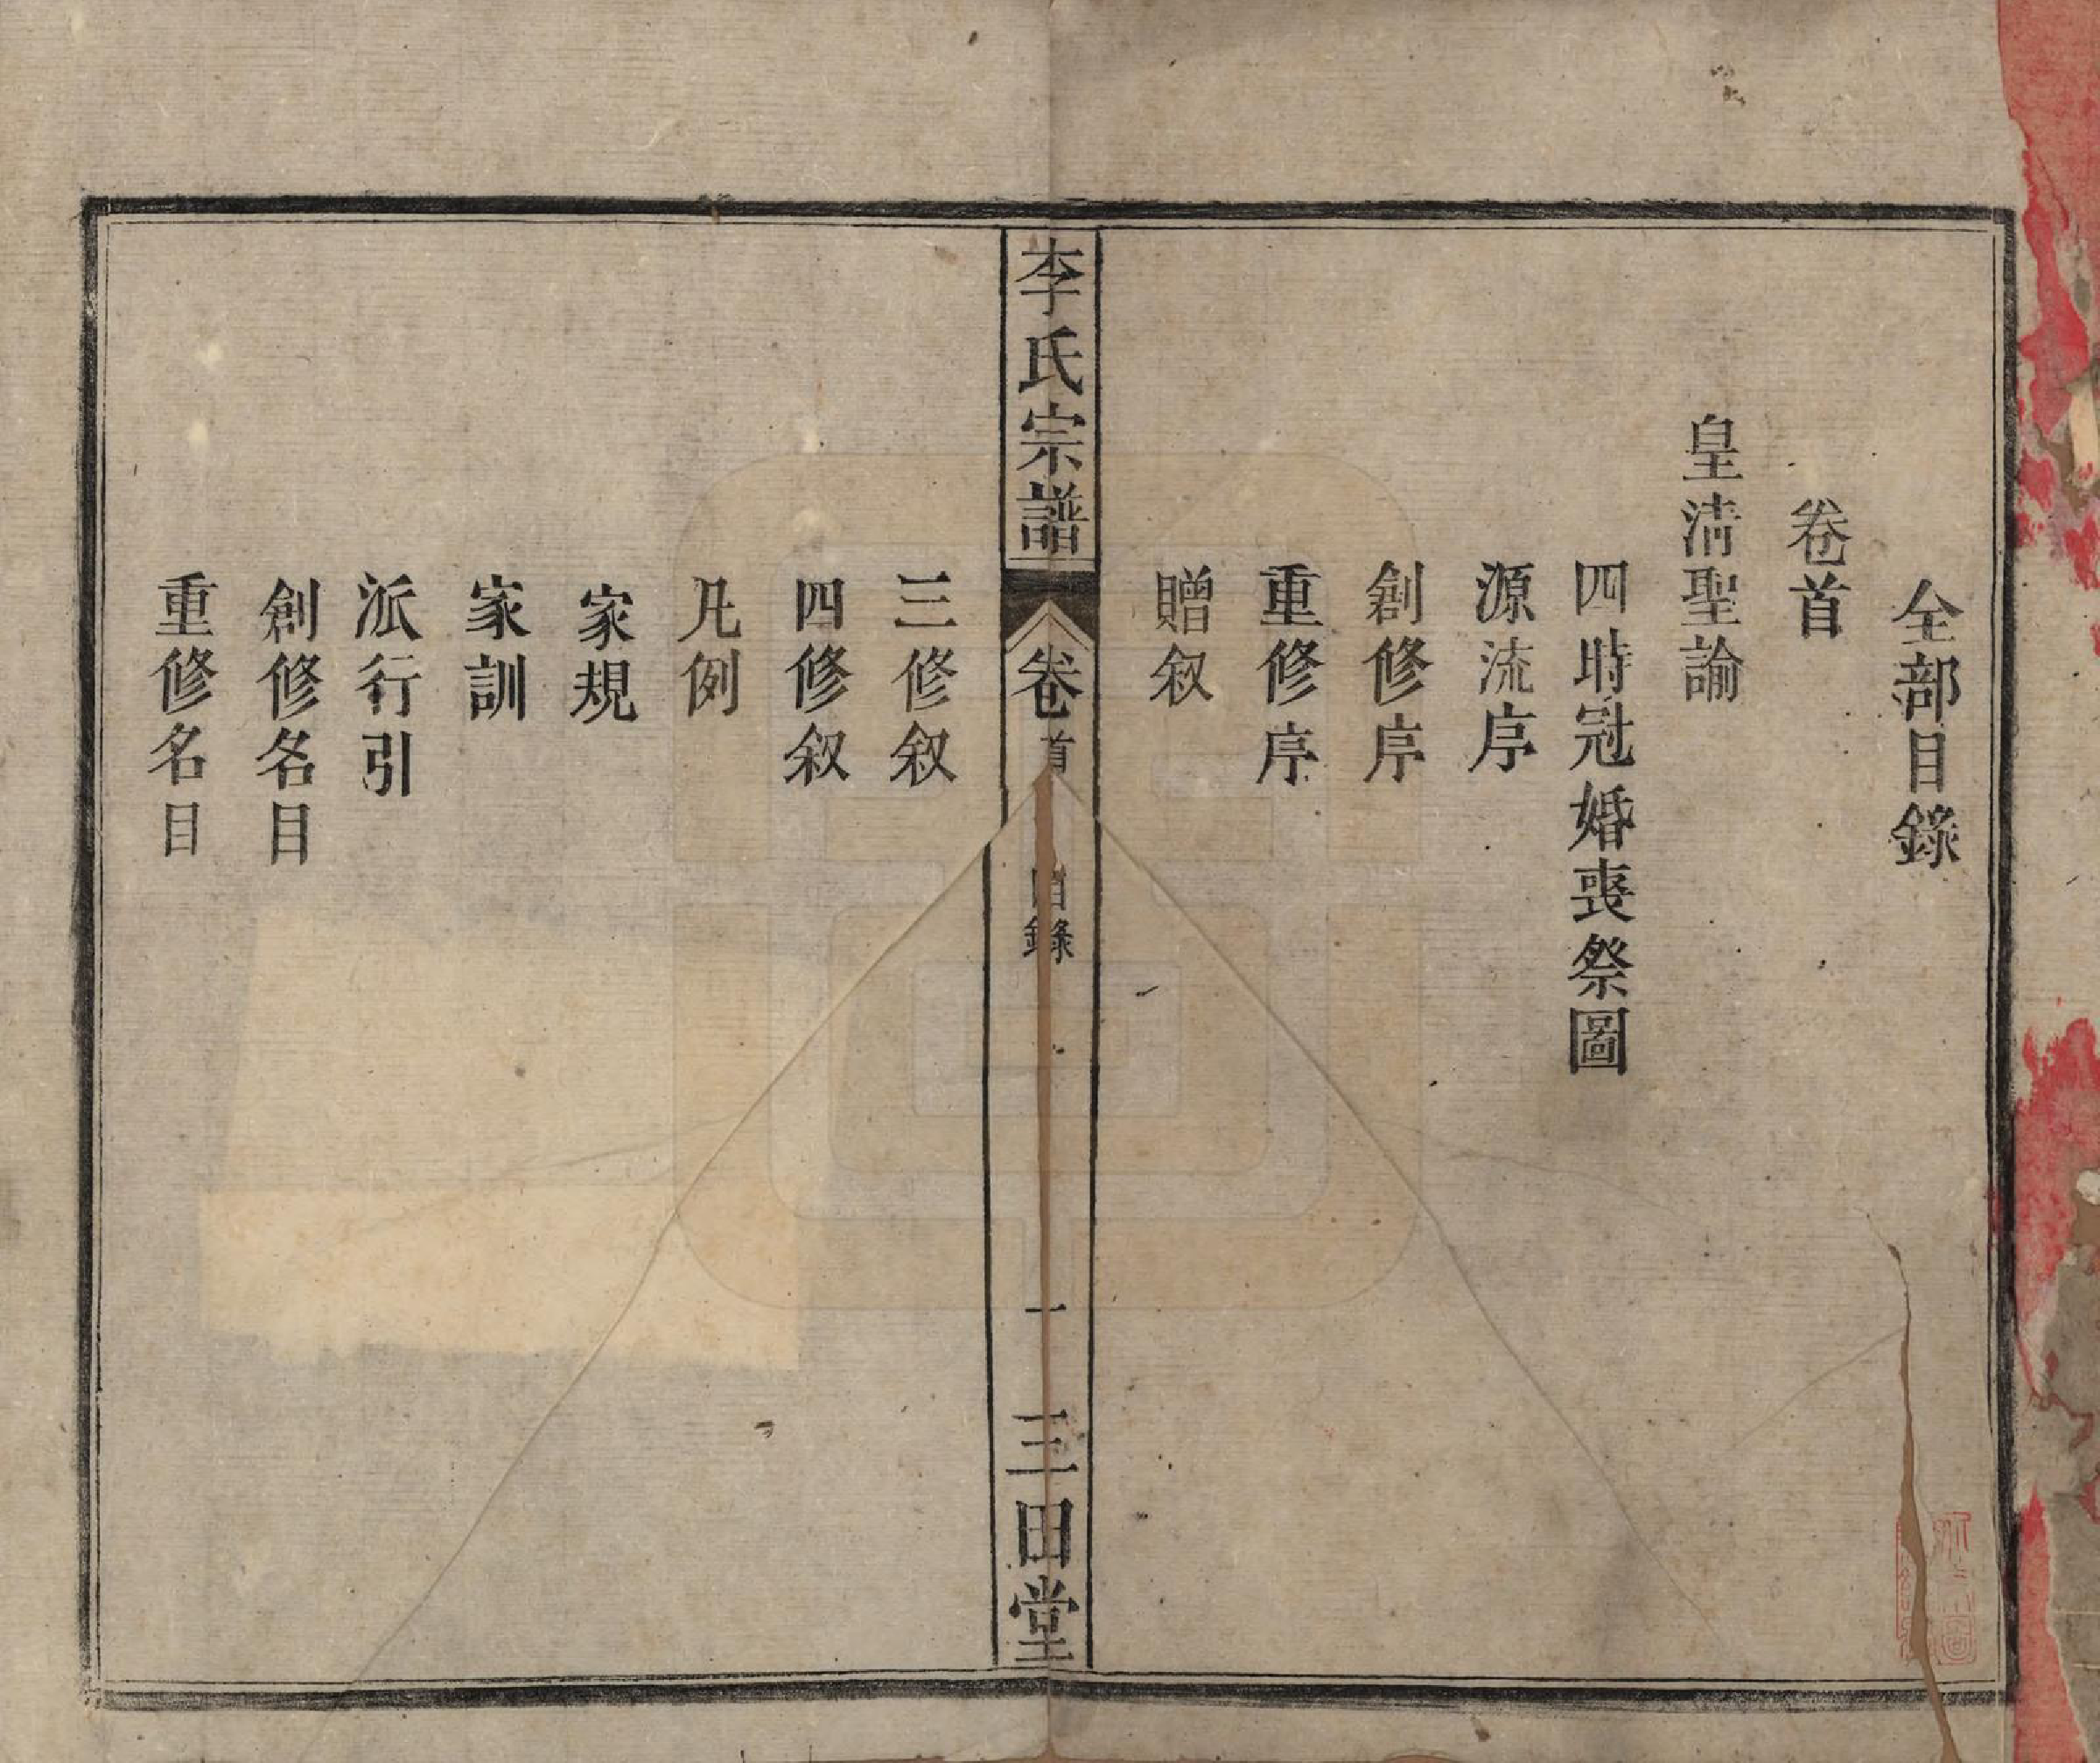 全部目錄
卷首
皇清聖諭
四時冠婚喪祭圖
源流序
創修序
重修序
贈叙
李氏宗譜
卷首
目錄
一
三田堂
三修叙
四修叙
凡例
家規
家訓
派行引
創修名目
重修名目